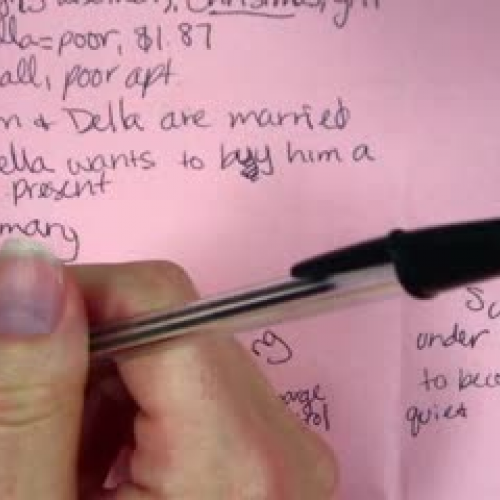 Christmas, gift
lla=poor, $1.87
all, poor apt
m & Della are married
ella wants to buy him a
present
mary
under
to beco
quiet